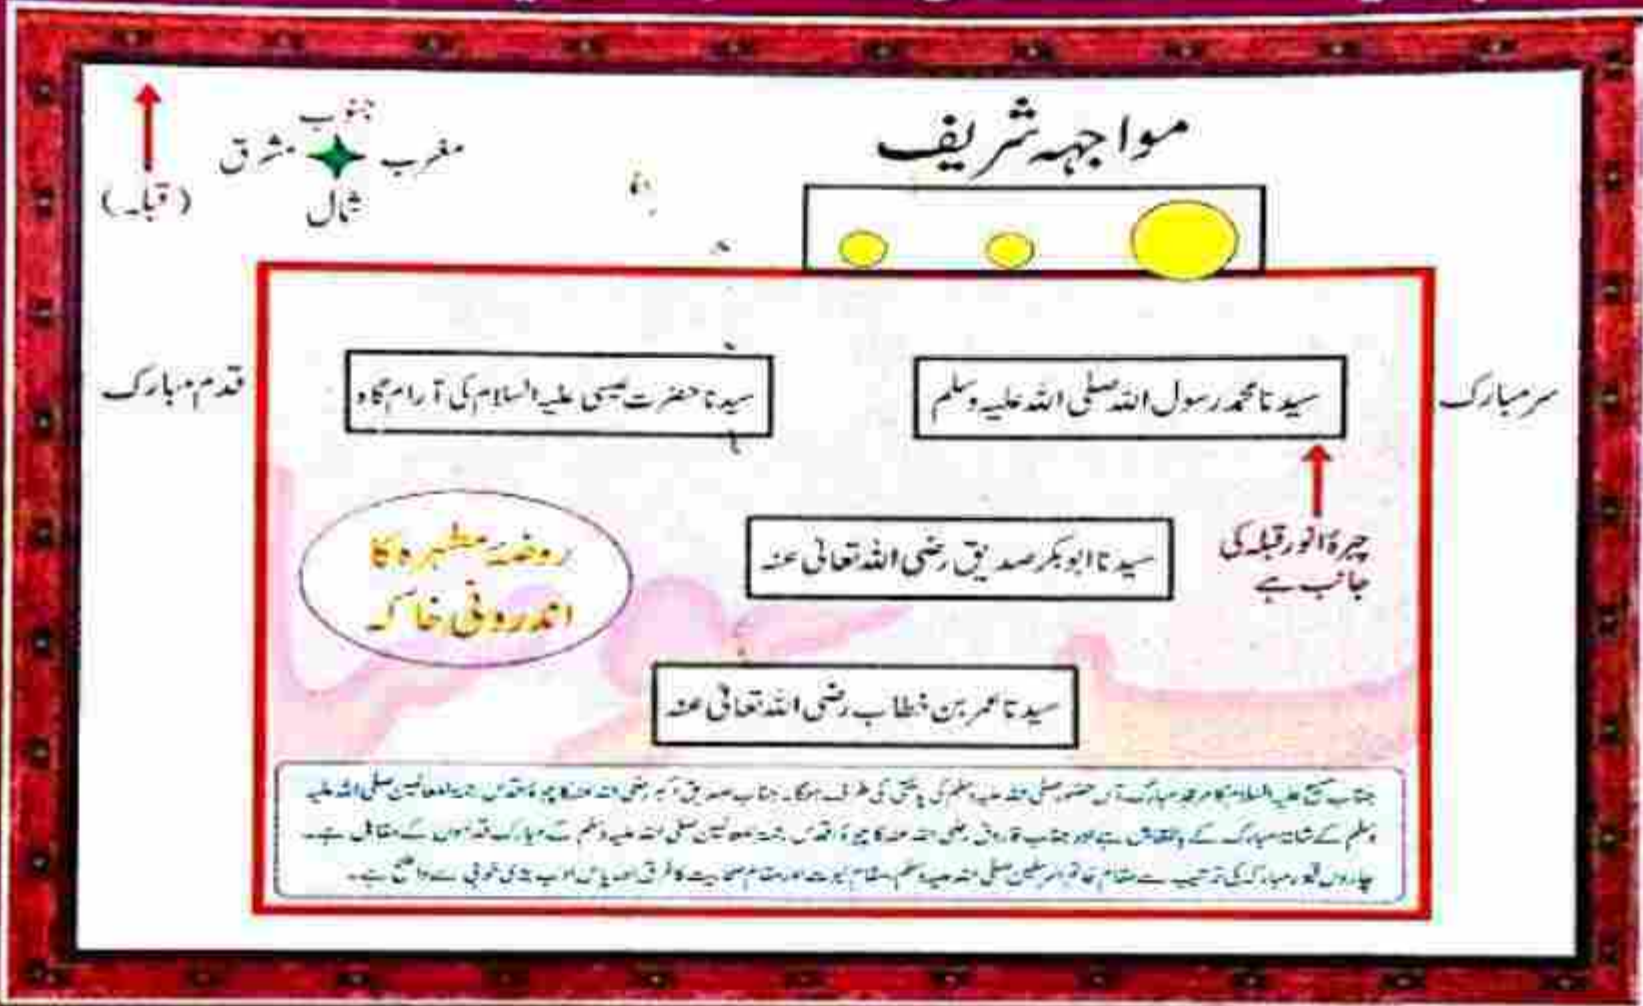 مواجہہ شریف
جنوب
مغرب مشرق
شمال
(قبلہ)
سر مبارک
سیدنا محمد رسول اللہ صلی اللہ علیہ وسلم
سیدنا حضرت عیسی علیہ السلام کی آرام گاہ
قدم مبارک
چہرۂ انور قبلہ کی
جانب ہے
سیدنا ابوبکر صدیق رضی اللہ تعالی عنہ
روضۂ مطہرہ کا
اندرونی خاکہ
سیدنا عمر بن خطاب رضی اللہ تعالی عنہ
جناب مسیح علیہ السلام کا مرقد مبارک آں حضور صلی اللہ علیہ وسلم کی پائنتی کی طرف ہوگا۔ جناب صدیق اکبر رضی اللہ عنہ کا چہرۂ اقدس رحمۃ للعالمین صلی اللہ علیہ
وسلم کے شانہ مبارک کے بالمقابل ہے اور جناب فاروق رضی اللہ عنہ کا چہرۂ اقدس رحمۃ للعالمین صلی اللہ علیہ وسلم کے مبارک قدموں کے مقابل ہے۔
چاروں قبور مبارکہ کی ترتیب سے مقام خاتم المرسلین صلی اللہ علیہ وسلم، مقام نبوت اور مقام صحابیت کا فرق اور پاس ادب بڑی خوبی سے واضح ہے۔